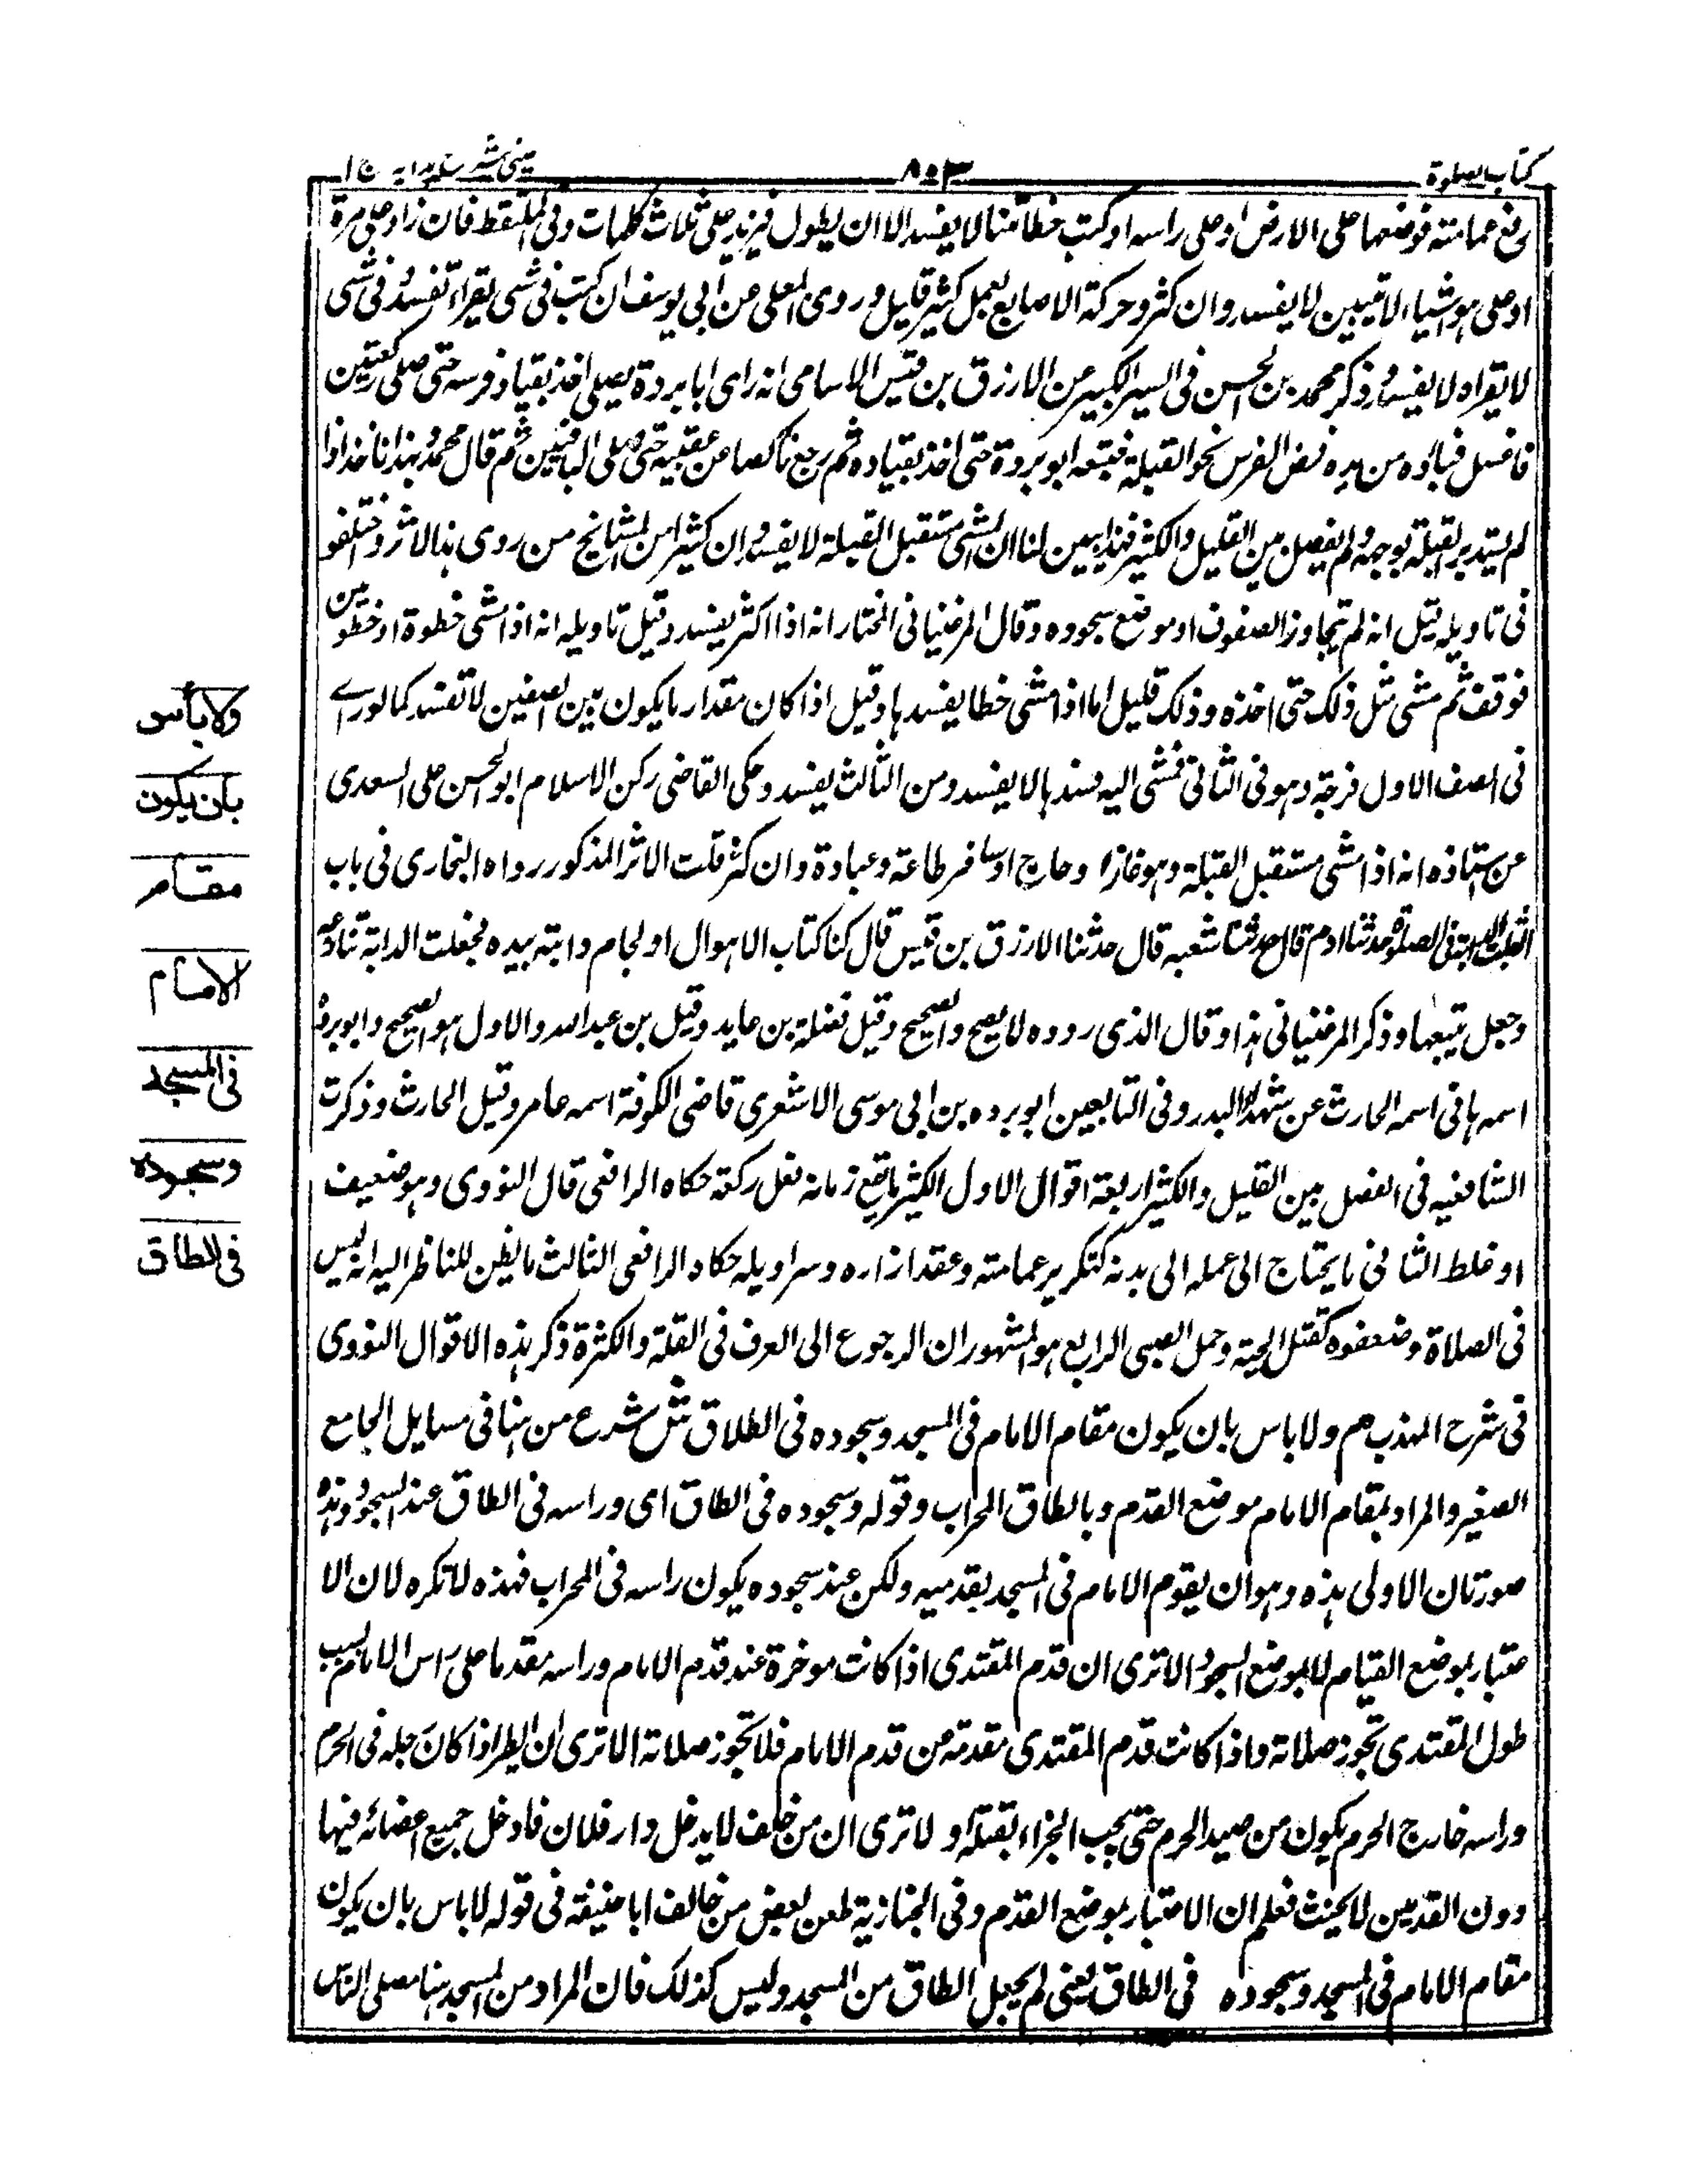 كتاب الصلوة
٨٠٣
عينى شرح هدايه ج ١
رفع عمامته فوضعها على الارض او على راسه او كتب خطا مثنا لا يفسد الا ان يطول فيزيد على ثلاث كلمات وفى الملتقط فان زاد على مرة
او على هو اشياء لا تبين لا يفسد وان كثر وحركة الاصابع لعمل كثير قليل وروى المعلى عن ابى يوسف ان كتب فى شى يقراء تفسد وفى شى
لا يقراه لا يفسد وذكر محمد بن الحسن فى السير الكبير عن الارزق بن قيس الاسامى انه راى ابا بردة يصلى اخذ بقياد فرسه حتى صلى ركعتين
فانسل قياده من يده فمض الفرس نحو القبلة فتبعه ابو بردة حتى اخذ بقياده ثم رجع ناكصا عن عقبيه حتى صلى الباقيتين ثم قال محمد وبهذا ناخذ اذا
لم يستدبر القبلة بوجهه ولم يفصل بين القليل والكثير فهذا يبين لنا ان المشى مستقبل القبلة لا يفسد وان كثير امن المشايخ من روى هذا الاثر واختلفو
فى تاويله قيل انه لم يتجاوز الصفوف او موضع سجوده وقال المرغنيانى المختار انه اذا اكثر يفسد وقيل تاويله انه اذا مشى خطوة او خطوتين
فوقف ثم مشى مثل ذلك حتى اخذه وذلك قليل اما اذا مشى خطا يفسدها وقيل اذا كان مقدار ما يكون بين الصفين لا تفسد كما لو راى
فى الصف الاول فرجة وهو فى الثانى فمشى اليه فسدها لا يفسد ومن الثالث يفسد وحكى القاضى ركن الاسلام ابو الحسن على السعدى
عن ستاذه انه اذا مشى مستقبل القبلة وهو غازا وحاج او سافر طاعة وعبادة وان كثر قلت الاثر المذكور رواه البخارى فى باب
انفلت الدابة فى الصلوة حدثنا ادم قال حدثنا شعبه قال حدثنا الارزق بن قيس قال كنا كتاب الاهوال او لجام دابته بيده فجعلت الدابة تنازعه
وجعل يتبعها وذكر المرغنيانى هذا وقال الذى رووه لا يصح والصحيح وقيل نضلة بن عايد وقيل بن عبد الله والاول هو الصحيح وابو بردة
اسمه هانى اسمه الحارث عن شهد البدر وفى التابعين ابو برده بن ابى موسى الاشعرى قاضى الكوفة اسمه عامر وقيل الحارث وذكرت
الشافعيه فى الفصل بين القليل والكثير اربعة اقوال الاول الكثير ما يقع زمانه نفل ركعة حكاه الرافعى قال النووى وهو ضعيف
او غلط الثانى ما يحتاج الى عمله الى بدنه كتكرير عمامته وعقد ازاره وسراويله حكاه الرافعى الثالث ما يظن للناظر اليه انه ليس
فى الصلاة وضعفوه كقتل الحية وحمل الصبى الرابع هو المشهور ان الرجوع الى العرف فى القلة والكثرة ذكر هذه الاقوال النووى
فى شرح المهذب م ولا باس بان يكون مقام الامام فى المسجد وسجوده فى الطلاق ش شرع من هنا فى مسايل الجامع
الصغير والمراد بمقام الامام موضع القدم وبالطاق المحراب وقوله وسجوده فى الطاق اى وراسه فى الطاق عند السجود وهذه
صورتان الاولى هذه وهو ان يقوم الامام فى المسجد بقدميه ولكن عند سجوده يكون راسه فى المحراب فهذه لا تكره لان الا
عتبار بموضع القيام لا بموضع السجود الا ترى ان قدم المقتدى اذا كانت موخرة عند قدم الامام وراسه مقدما على راس الامام بسبب
طول المقتدى تجوز صلاته واذا كانت قدم المقتدى مقدمة من قدم الامام فلا تجوز صلاته الا ترى ان الطير اذا كان رجله فى الحرم
وراسه خارج الحرم يكون من صيد الحرم حتى يجب الجزاء بقتله او لا ترى ان من حلف لا يدخل دار فلان فادخل جميع اعضائه فيها
دون القدمين لا يحنث فعلم ان الاعتبار بموضع القدم وفى الجنازية طعن بعض من خالف ابا حنيفة فى قوله لا باس بان يكون
مقام الامام فى المسجد وسجوده فى الطاق يعنى لم يجعل الطاق من المسجد وليس كذلك فان المراد من المسجد هنا مصلى الناس
ولا بأس
بان يكون
مقام
الامام
فى المسجد
وسجوده
فى الطاق